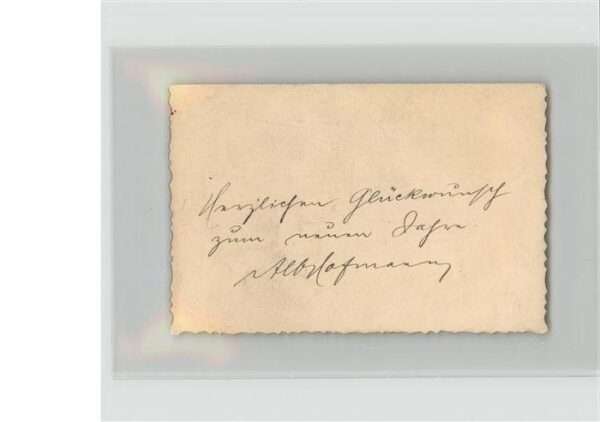 Herzlichen Glückwunsch
zum neuen Jahre
Alb. Hofmann